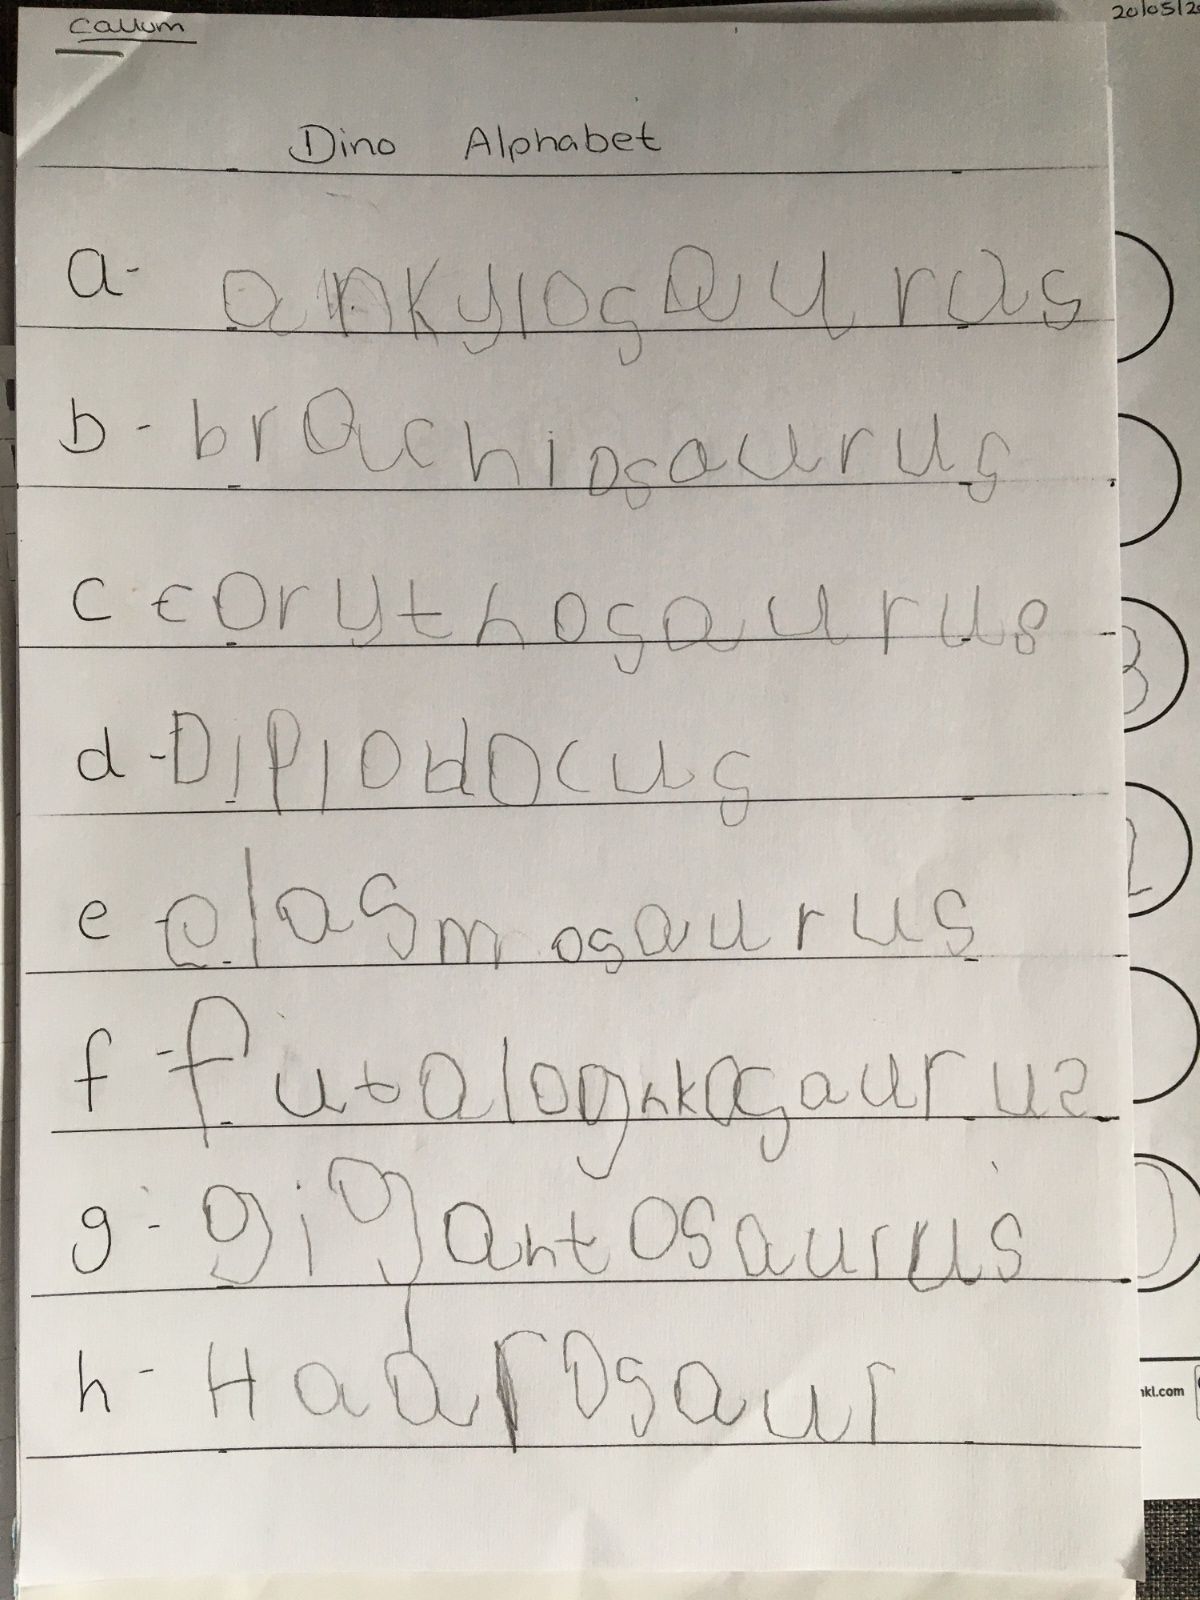 Callum
20/05/20
Dino Alphabet
a- ankylosauras
b - brachiosaurus
c corythosaurus
d - Diplodocus
e elasmosaurus
f - futalognkosaurus
g - gigantosaurus
h - Hadrosaur
3
2
nkl.com